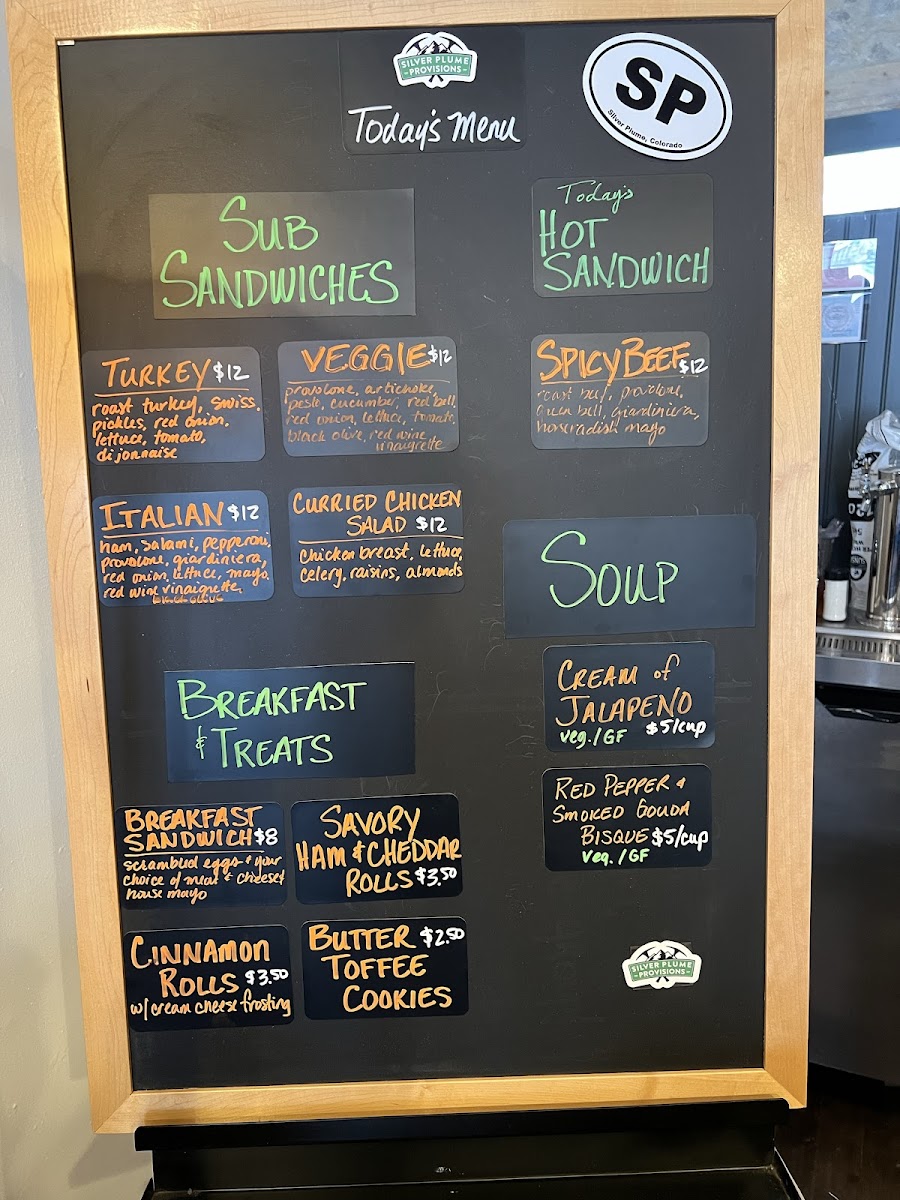 SILVER PLUME
PROVISIONS
Today's Menu
SP
Silver Plume, Colorado
SUB
SANDWICHES
TURKEY $12
roast turkey, swiss,
pickles, red onion,
lettuce, tomato,
dijonnaise
VEGGIE $12
provolone, artichoke,
pesto, cucumber, red bell,
red onion, lettuce, tomato,
black olive, red wine
vinaigrette
ITALIAN $12
ham, salami, pepperoni,
provolone, giardiniera,
red onion, lettuce, mayo,
red wine vinaigrette,
CURRIED CHICKEN
SALAD $12
Chicken breast, lettuce,
celery, raisins, almonds
Today's
HOT
SANDWICH
SPICY BEEF $12
roast beef, provolone,
green bell, giardiniera,
horseradish mayo
SOUP
CREAM of
JALAPENO
veg./GF $5/cup
RED PEPPER &
SMOKED GOUDA
BISQUE $5/cup
veg./GF
BREAKFAST
& TREATS
BREAKFAST
SANDWICH $8
scrambled eggs & your
choice of meat & cheese &
house mayo
SAVORY
HAM & CHEDDAR
ROLLS $3.50
CINNAMON
ROLLS $3.50
w/ cream cheese frosting
BUTTER $2.50
TOFFEE
COOKIES
SILVER PLUME
PROVISIONS